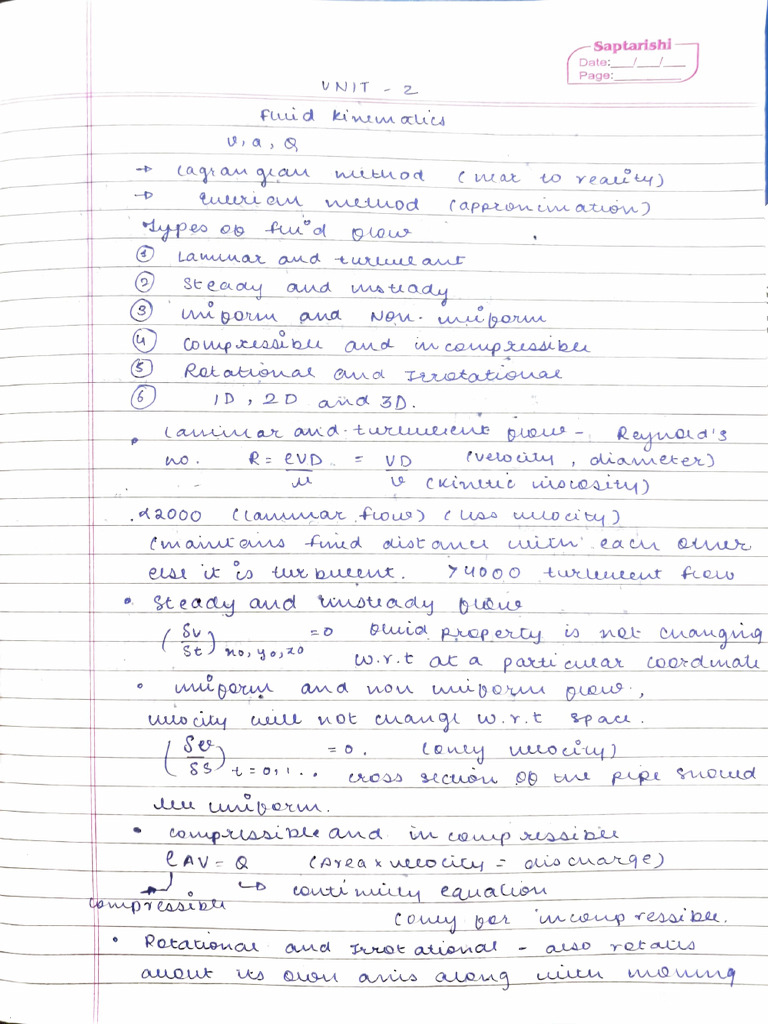 Saptarishi
Date:___/___/___
Page:__________
UNIT - 2
fluid kinematics
v, a, Q
→ Lagrangian method (near to reality)
→ Eulerian method (approximation)
Types of fluid flow
① Laminar and turbulant
② Steady and unsteady
③ uniform and Non-uniform
④ compressible and incompressible
⑤ Rotational and Irrotational
⑥ 1D, 2D and 3D.
• Laminar and turbulent flow - Reynold's
no. R = ρVD/μ = VD/ν (velocity, diameter)
(kinetic viscosity)
<2000 (laminar flow) (less velocity)
(maintains fixed distance with each other
else it is turbulent. >4000 turbulent flow
• Steady and unsteady flow
(δv/δt) x0, y0, z0 = 0 fluid property is not changing
w.r.t at a particular coordinate
• uniform and non uniform flow,
velocity will not change w.r.t space.
(δv/δs) t=0,1.. = 0. (only velocity)
cross section of the pipe should
be uniform.
• compressible and incompressible
ρAV = Q (Area x velocity = discharge)
↳ continuity equation
compressible
(only for incompressible.
• Rotational and Irrotational - also rotates
about its own axis along with moving